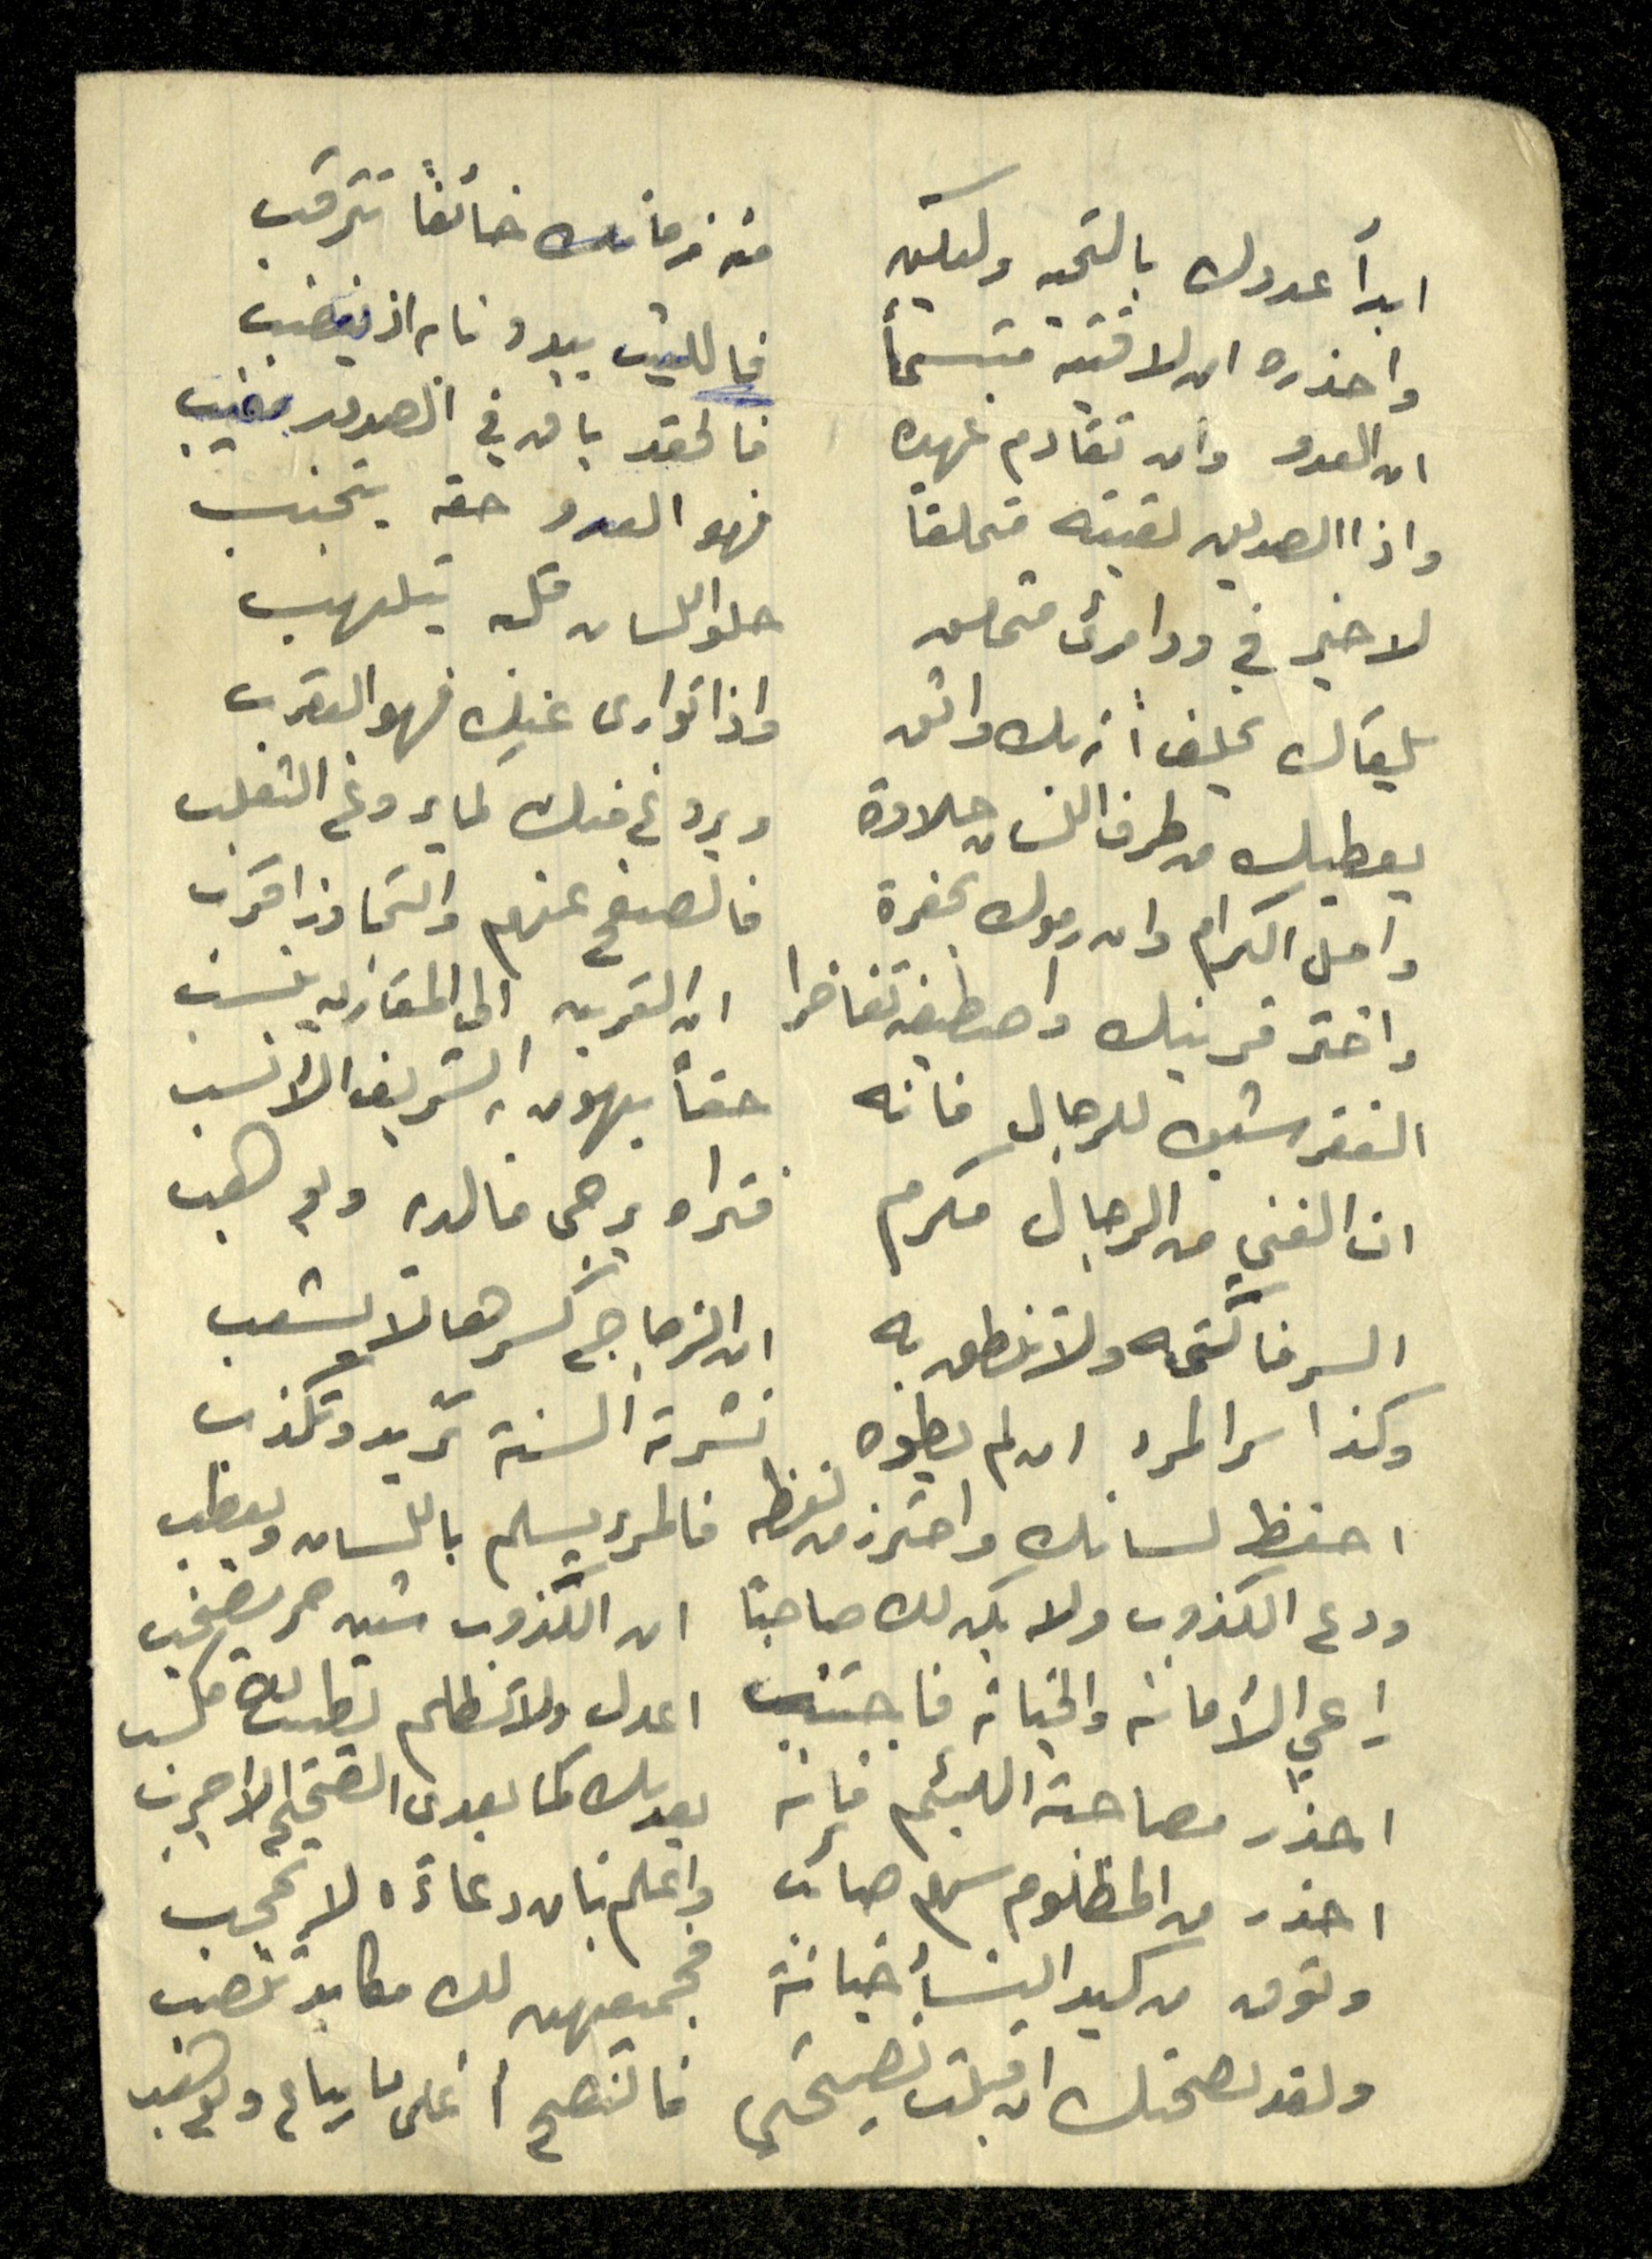 ابدأ عدوك بالتحيه ولتكن منه زمانك خائفاً تترقب
واحذره ان لاقيته متبسماً فالليث يبدو نابه اذ يغضب
ان العدو وان تقادم عهده فالحقد باق في الصدور مغيب
واذا الصديق لقيته متملقاً فهو العدو حقه يتجنب
لا خير في ود امرئ متملق حلو اللسان قلبه يتلهب
يلقاك يحلف أنه بك واثق واذا توارى عنك فهو العقرب
يعطيك من طرف اللسان حلاوة ويروغ منك كما يروغ الثعلب
وصل الكرام وان رموك بجفوة فالصفح عنهم والتجاوز اقرب
واختر قرينك واصطفيه تفاخرا ان القرين الى المقارن ينسب
الفقر شين للرجال فانه حقاً يهون به الشريف الأنسب
ان الغني من الرجال مكرم فتراه يرجى ما لديه ويرهب
السر فاكتمه ولا تنطق به ان الزجاج كسرها لا يشعب
وكذا سر المرء ان لم يطوه نشرته السنة تزيد وتكذب
احفظ لسانك واحترز من لفظه فالمرء يسلم باللسان ويعطب
ودع الكذوب ولا يكن لك صاحبًا ان الكذوب شين حر يصحب
راعي الأمانه والخيانه فاجتنب اعدل ولا تظلم يطيب لك مكسب
احذر مصاحبة اللئيم فإنه يعديك كما يعدى الصحيح الاجرب
احذر من المظلوم سهم صائب واعلم بان دعاءه لا يحجب
وتوق من كيد النسأ خيانة فجميعهن لك مكايد تنصب
ولقد نصحتك ان قبلت نصيحتي فالنصح أغلى ما يباع ويوهب